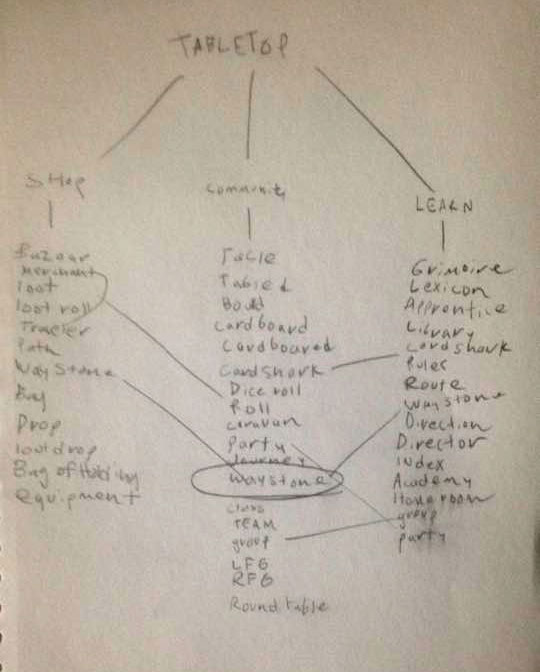 TABLETOP
SHOP
Bazaar
Merchant
loot
loot roll
Traveler
Path
Way Stone
Bag
Drop
lootdrop
Bag of Holding
equipment
Community
Table
Tabled
Board
Cardboard
Cardboared
Cardshark
Dice roll
Roll
Caravan
Party
Journey
Waystone
Class
TEAM
group
LFG
RFG
Round table
LEARN
Grimoire
Lexicon
Apprentice
Library
Cardshark
Rules
Route
Waystone
Direction
Director
Index
Academy
Homeroom
group
party